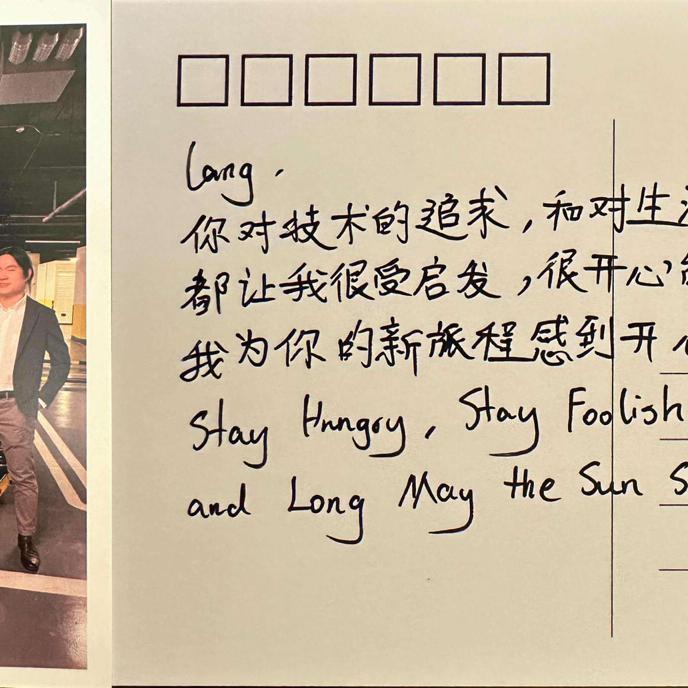 Lang.
你对技术的追求，和对生活
都让我很受启发，很开心能
我为你的新旅程感到开心
Stay Hungry, Stay Foolish
and Long May the Sun S